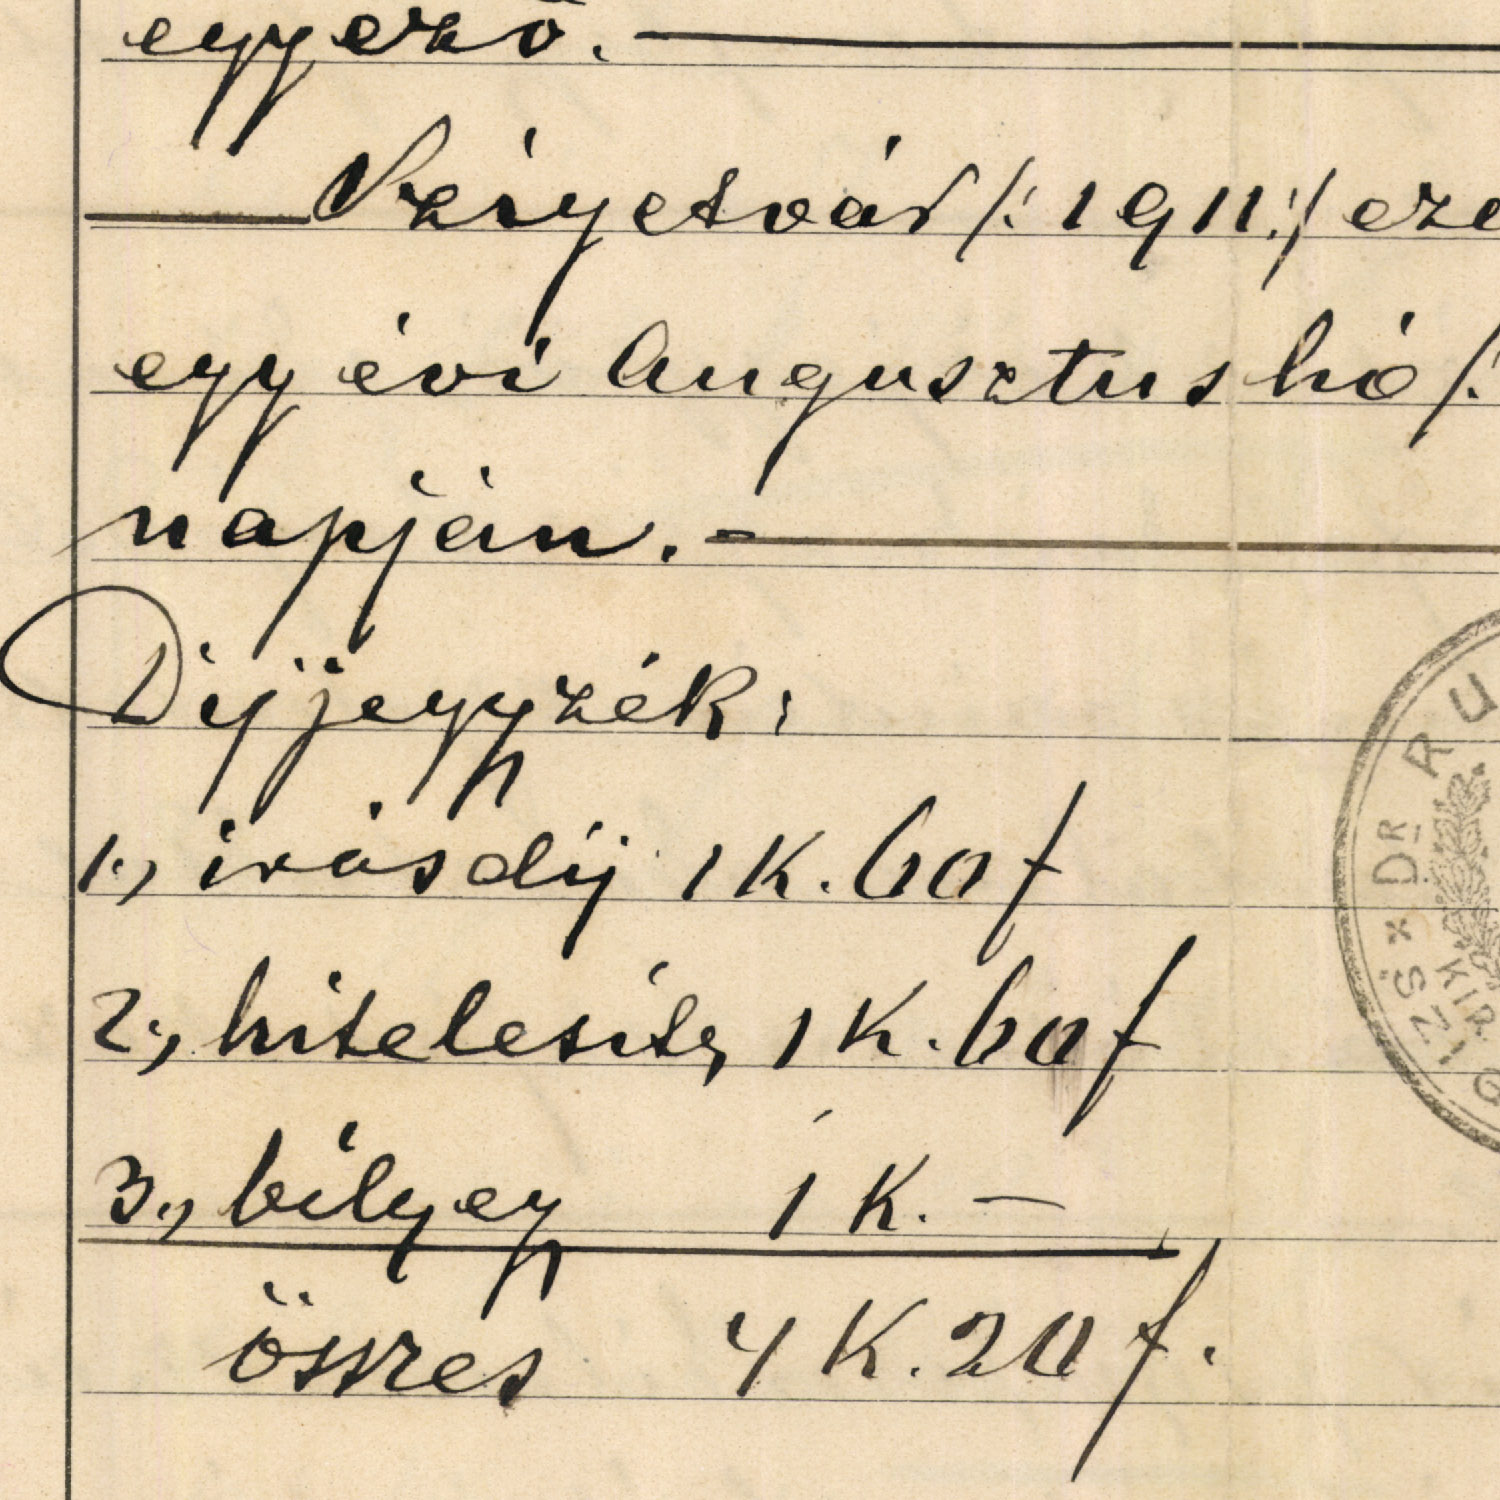 egyező. —
Szigetvár /: 1911 :/ eze
egy évi Augusztus hó /:
napján. —
Díjjegyzék:
1., irásdíj 1 K. 60 f
2., hitelesités 1 K. 60 f
3., bélyeg 1 K. —
összes 4 K. 20 f.
DR RU
KIR